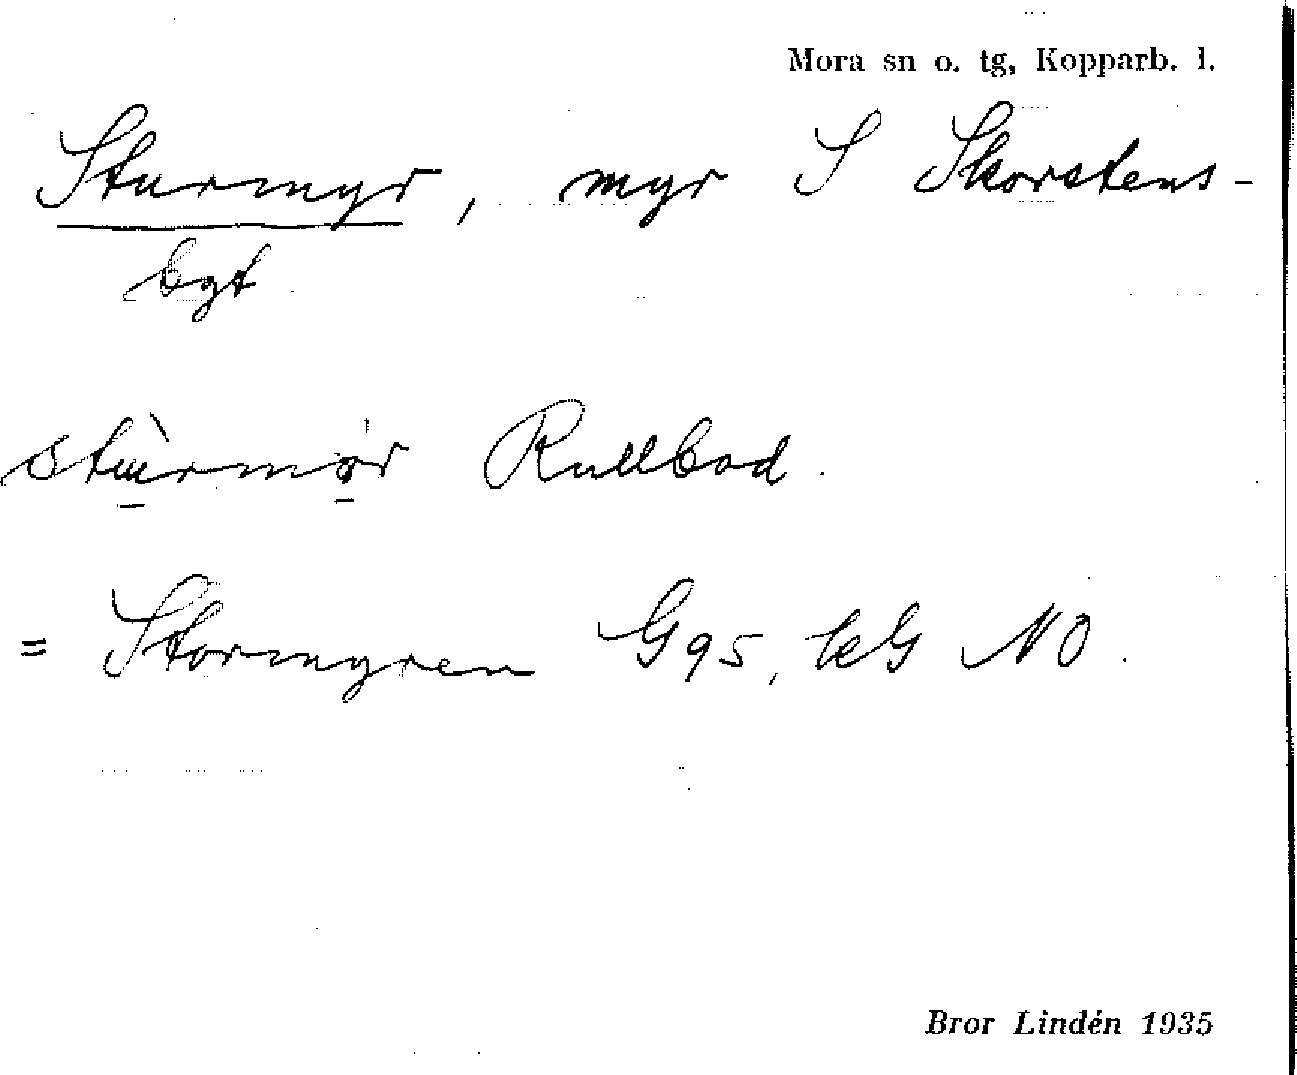 Mora sn o. tg, Kopparb. l.
Sturmyr, myr S Skorstens-
bgt
stùrmør Rullbod.
= Stormyren G95, keG NO.
Bror Lindén 1935